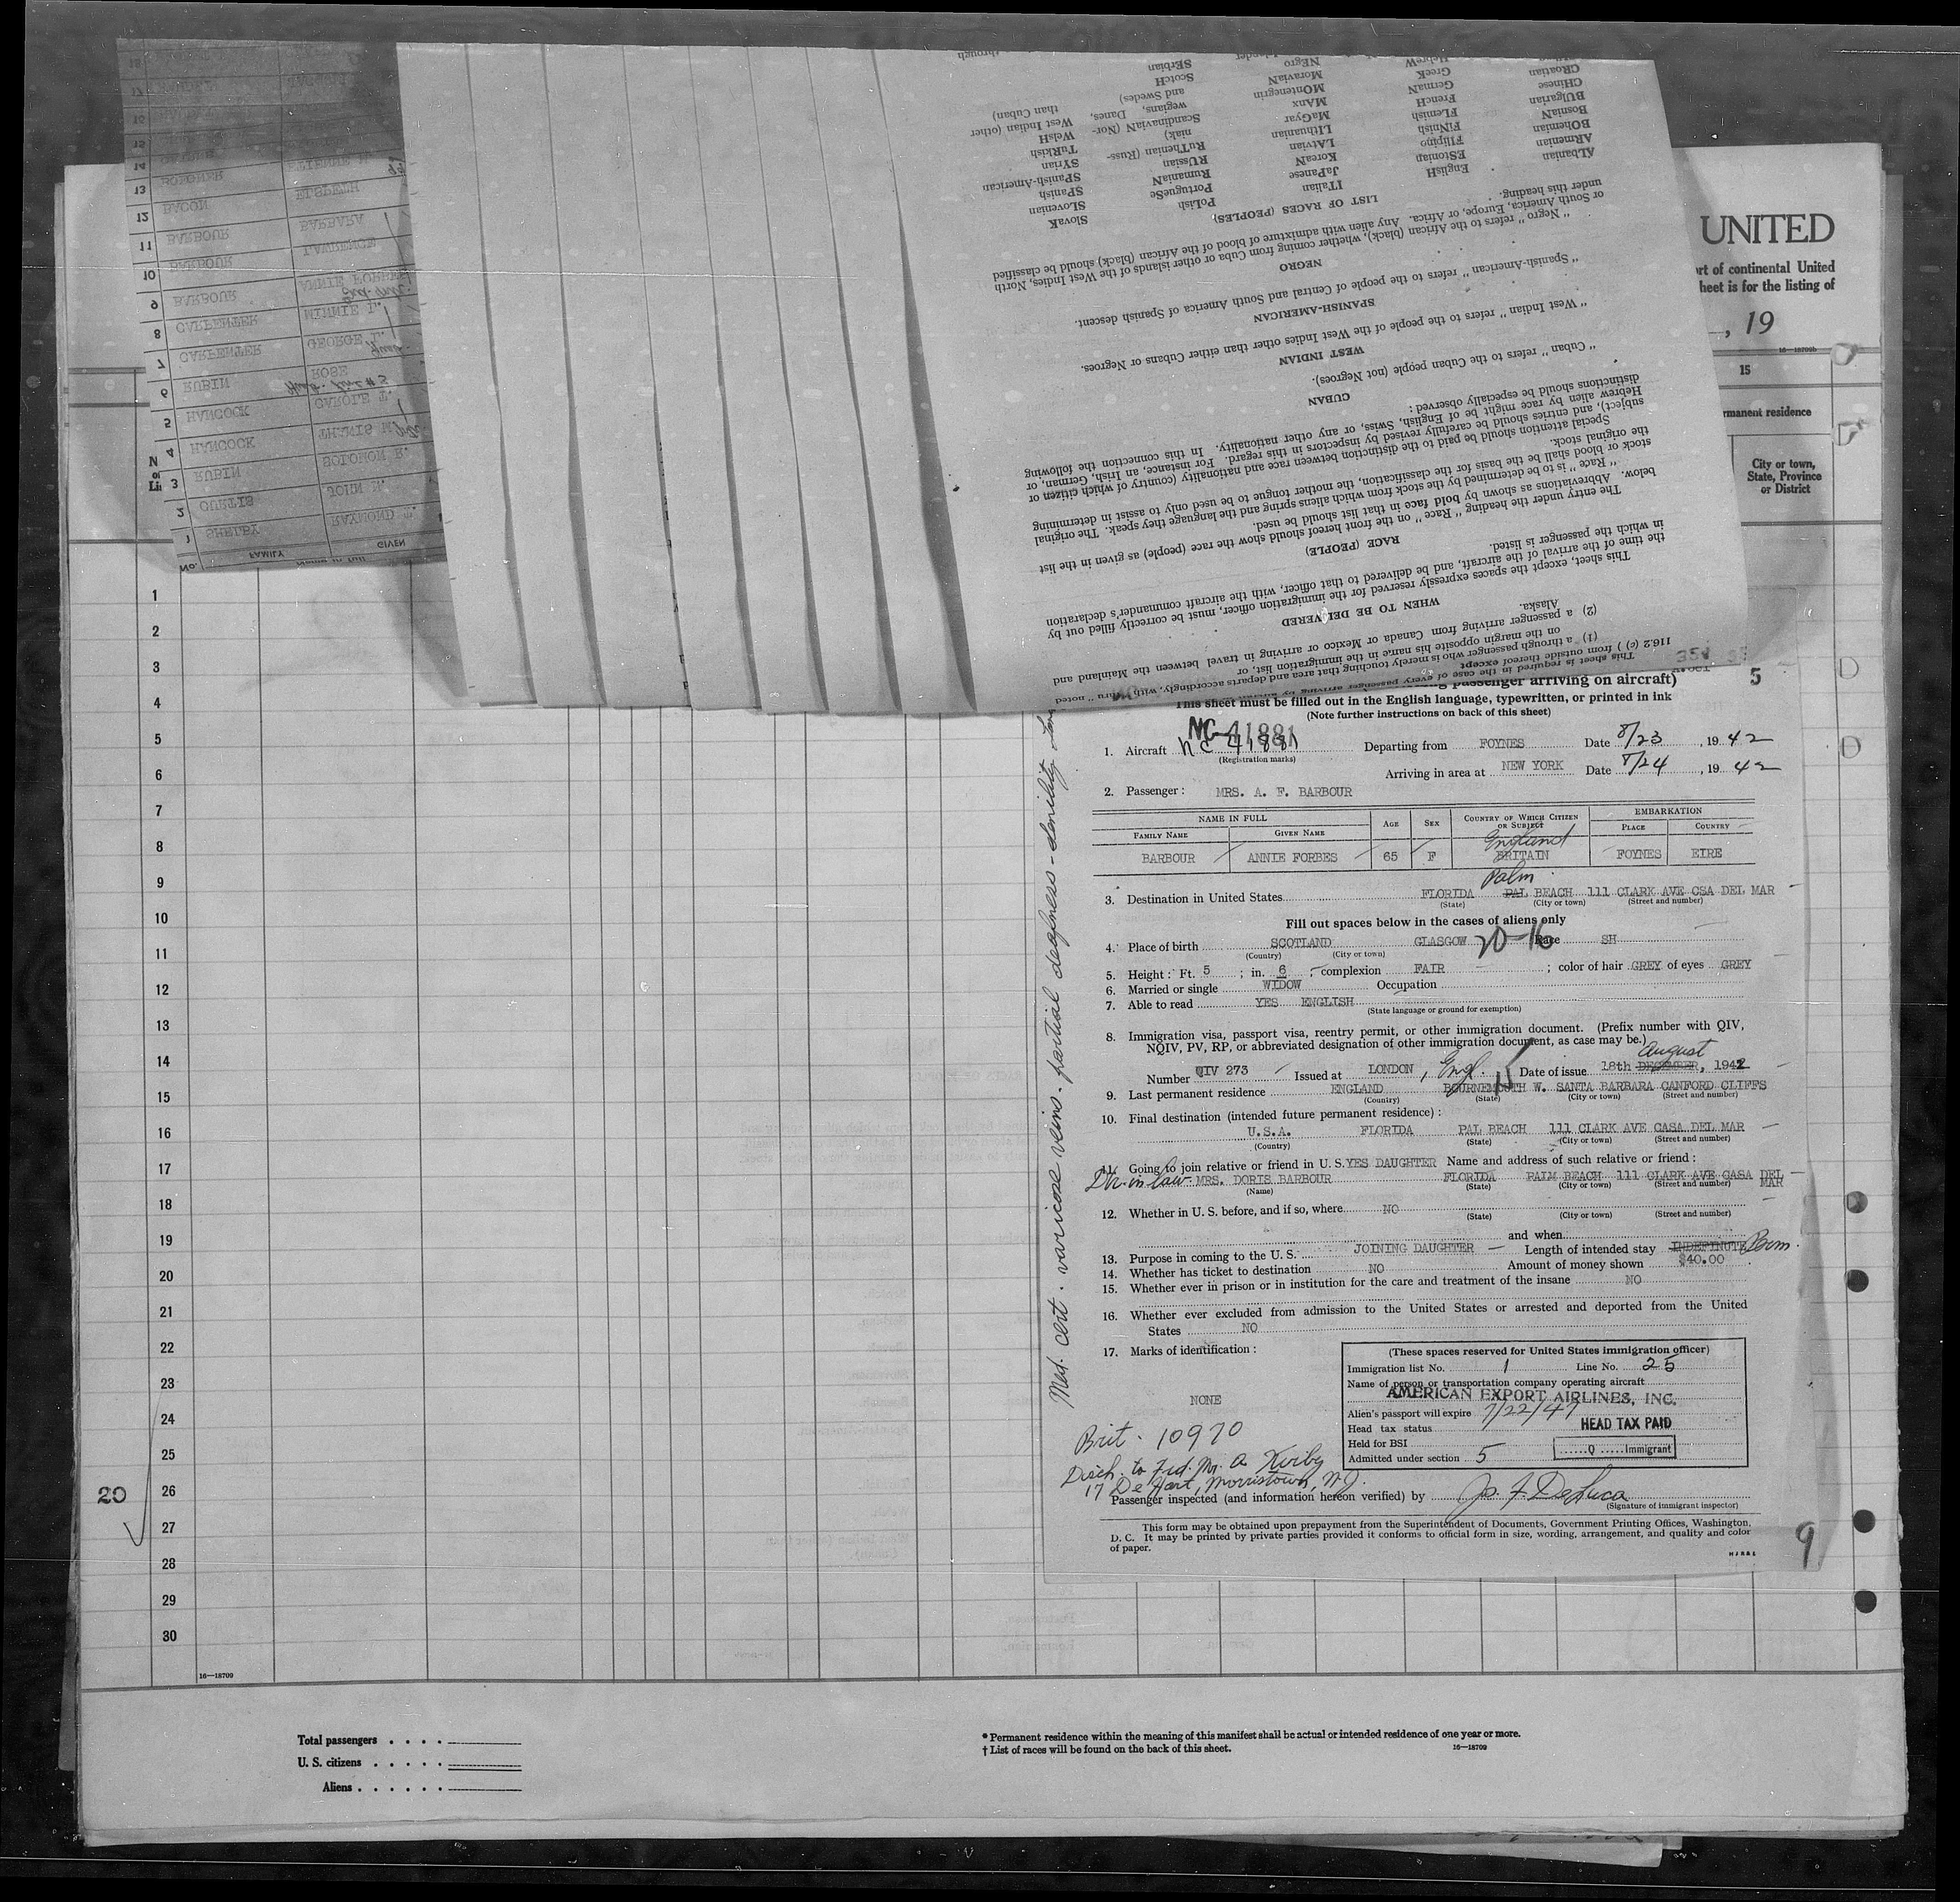 UNITED
rt of continental United
heet is for the listing of
, 19
16—18709b
15
rmanent residence
City or town,
State, Province
or District
No.
FAMILY
GIVEN
1 SHELBY RAYMOND
2 CURTIS JOHN
3 RUBIN SOLOMON R.
4 HANCOCK
5 HANCOCK CAROLE T.
6 RUBIN ROSE
7 CARPENTER GEORGE
8 CARPENTER MINNIE L.
9 BARBOUR ANNIE FORBES
10 BARBOUR LAWRENCE
11 BARBOUR BARBARA
12 BACON ELSPETH
13
14
15
116.2 (c) ) from outside thereof except
This sheet is required in the case of every passenger arriving by aircraft
(1) a through passenger who is merely touching that area and departs accordingly, with "thru" noted
on the margin opposite his name in the immigration list, or
(2) a passenger arriving from Canada or Mexico or arriving in travel between the Mainland and
Alaska.
WHEN TO BE DELIVERED
This sheet, except the spaces expressly reserved for the immigration officer, must be correctly filled out by
the time of the arrival of the aircraft, and be delivered to that officer, with the aircraft commander's declaration
in which the passenger is listed.
RACE (PEOPLE)
The entry under the heading "Race" on the front hereof should show the race (people) as given in the list
below. Abbreviations as shown by bold face in that list should be used.
"Race" is to be determined by the stock from which aliens spring and the language they speak. The original
stock or blood shall be the basis for the classification, the mother tongue to be used only to assist in determining
the original stock.
Special attention should be paid to the distinction between race and nationality (country of which citizen or
subject), and entries should be carefully revised by inspectors in this regard. For instance, an Irish, German, or
Hebrew alien by race might be of English, Swiss, or any other nationality. In this connection the following
distinctions should be especially observed:
CUBAN
"Cuban" refers to the Cuban people (not Negroes).
WEST INDIAN
"West Indian" refers to the people of the West Indies other than either Cubans or Negroes.
SPANISH-AMERICAN
"Spanish-American" refers to the people of Central and South America of Spanish descent.
NEGRO
"Negro" refers to the African (black), whether coming from Cuba or other islands of the West Indies, North
or South America, Europe, or Africa. Any alien with admixture of blood of the African (black) should be classified
under this heading.
LIST OF RACES (PEOPLES)
ALbanian EnglisH ITalian PoLish SlovaK
ARmenian EStonian JaPanese PortugueSe SLovenian
BOhemian Filipino KoreaN RumaniaN SPanish
BosniaN FiNnish LAtvian RUssian SPanish-American
BUlgarian FLemish LIthuanian RuThenian (Russ- SYrian
CHinese FrencH MaGyar niak) TuRkish
CRoatian GermaN MAnx ScandinaviaN (Nor- WelsH
GreeK MOntenegrin wegians, Danes, West Indian (other
HebreW MoraviaN and Swedes) than Cuban)
NEgro ScotcH
SErbian
through
passenger arriving on aircraft)
5
This sheet must be filled out in the English language, typewritten, or printed in ink
(Note further instructions on back of this sheet)
NC-41881
1. Aircraft NC 41881 Departing from FOYNES Date 8/23, 1942
(Registration marks)
Arriving in area at NEW YORK Date 8/24, 1942
2. Passenger: MRS. A. F. BARBOUR
NAME IN FULL AGE SEX COUNTRY OF WHICH CITIZEN OR SUBJECT EMBARKATION
FAMILY NAME GIVEN NAME PLACE COUNTRY
England
BARBOUR ANNIE FORBES 65 F BRITAIN FOYNES EIRE
Palm
3. Destination in United States FLORIDA PAL BEACH 111 CLARK AVE CSA DEL MAR
(State) (City or town) (Street and number)
Fill out spaces below in the cases of aliens only
4. Place of birth SCOTLAND GLASGOW 20-16 Race SH
(Country) (City or town)
5. Height: Ft. 5; in. 6; complexion FAIR; color of hair GREY of eyes GREY
6. Married or single WIDOW Occupation
7. Able to read YES ENGLISH
(State language or ground for exemption)
8. Immigration visa, passport visa, reentry permit, or other immigration document. (Prefix number with QIV,
NQIV, PV, RP, or abbreviated designation of other immigration document, as case may be.)
August
Number QIV 273 Issued at LONDON, Engl. Date of issue 18th DECEMBER, 1942
9. Last permanent residence ENGLAND BOURNEMOUTH W. SANTA BARBARA CANFORD CLIFFS
(Country) (State) (City or town) (Street and number)
10. Final destination (intended future permanent residence):
U.S.A. FLORIDA PAL BEACH 111 CLARK AVE CASA DEL MAR
(Country) (State) (City or town) (Street and number)
11. Going to join relative or friend in U.S. YES DAUGHTER Name and address of such relative or friend:
Dtr. in law. MRS. DORIS BARBOUR FLORIDA PALM BEACH 111 CLARK AVE CASA DEL MAR
(Name) (State) (City or town) (Street and number)
12. Whether in U. S. before, and if so, where NO
(State) (City or town) (Street and number)
and when
13. Purpose in coming to the U. S. JOINING DAUGHTER Length of intended stay INDEFINITE Perm.
14. Whether has ticket to destination NO Amount of money shown $40.00
15. Whether ever in prison or in institution for the care and treatment of the insane NO
16. Whether ever excluded from admission to the United States or arrested and deported from the United
States NO
17. Marks of identification:
NONE
(These spaces reserved for United States immigration officer)
Immigration list No. 1 Line No. 25
Name of person or transportation company operating aircraft
AMERICAN EXPORT AIRLINES, INC.
Alien's passport will expire 7/22/47
Head tax status HEAD TAX PAID
Held for BSI
Q Immigrant
Admitted under section 5
Brit. 10970
Disch. to Frd. Mr. A Kirby
17 De Hart, Morristown, N.J.
Passenger inspected (and information hereon verified) by Jo. F. DeLuca
(Signature of immigrant inspector)
This form may be obtained upon prepayment from the Superintendent of Documents, Government Printing Offices, Washington,
D. C. It may be printed by private parties provided it conforms to official form in size, wording, arrangement, and quality and color
of paper.
9
Med. cert. varicose veins. partial deafness - senility
1
2
3
4
5
6
7
8
9
10
11
12
13
14
15
16
17
18
19
20
21
22
23
24
25
20 26
27
28
29
30
16—18709
Total passengers . . . .
U. S. citizens . . . . .
Aliens . . . . . .
* Permanent residence within the meaning of this manifest shall be actual or intended residence of one year or more.
† List of races will be found on the back of this sheet.
16—18709